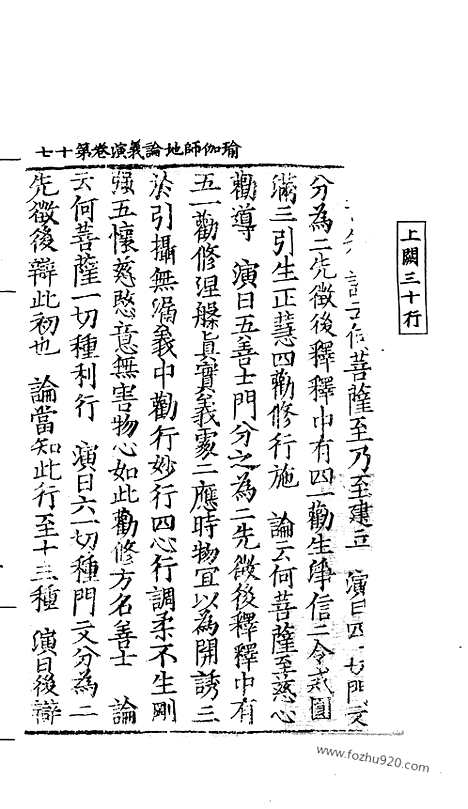 瑜伽師地論義演卷第十七
上闕三十行
論云何菩薩至乃至建立 演曰四一切門文
分為二先徵後釋釋中有四一勸生淨信二令戒圓
滿三引生正慧四勸修行施 論云何菩薩至慈心
勸導 演曰五善士門分之為二先徵後釋釋中有
五一勸修涅槃真實義處二應時物宜以為開誘三
於引攝無漏義中勸行妙行四心行調柔不生剛
强五懷慈愍意無害物心如此勸修方名善士 論
云何菩薩一切種利行 演曰六一切種門文分為二
先徵後辯此初也 論當知此行至十三種 演曰後辯
www.fozhu920.com